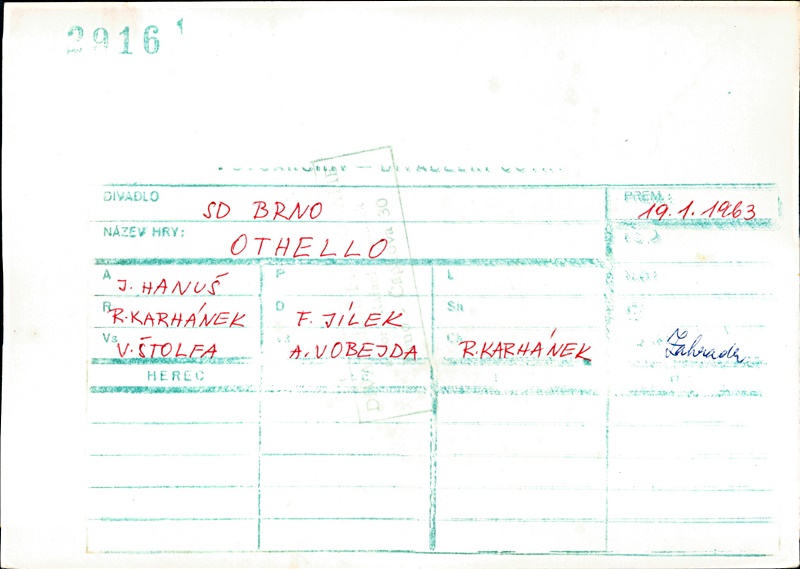 2916
DIVADLO SD BRNO PREM.: 19.1.1963
NÁZEV HRY: OTHELLO
A J. HANUŠ P L
R R. KARHÁNEK D F. JÍLEK Sn
Vs V. ŠTOLFA A. VOBEJDA R. KARHÁNEK
HEREC